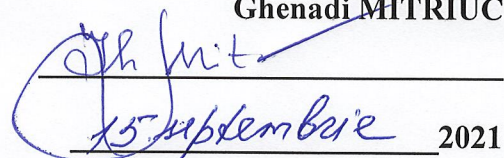 Ghenadi MITRIUC
15 septembrie 2021